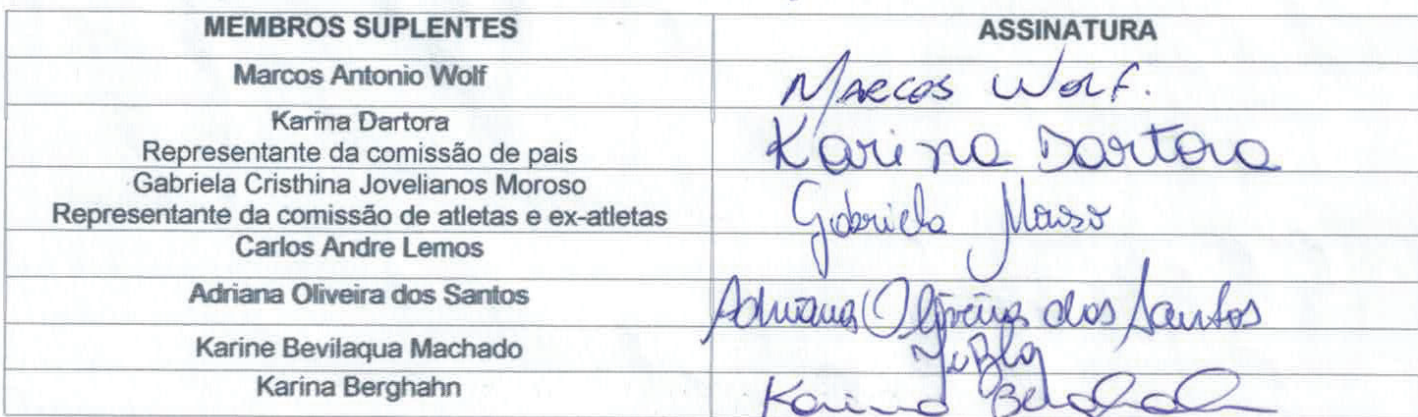 MEMBROS SUPLENTES ASSINATURA
Marcos Antonio Wolf Marcos Wolf.
Karina Dartora
Representante da comissão de pais Karina Dartora
Gabriela Cristhina Jovelianos Moroso
Representante da comissão de atletas e ex-atletas Gabriela Moroso
Carlos Andre Lemos
Adriana Oliveira dos Santos Adriana Oliveira dos Santos
Karine Bevilaqua Machado
Karina Berghahn Karina